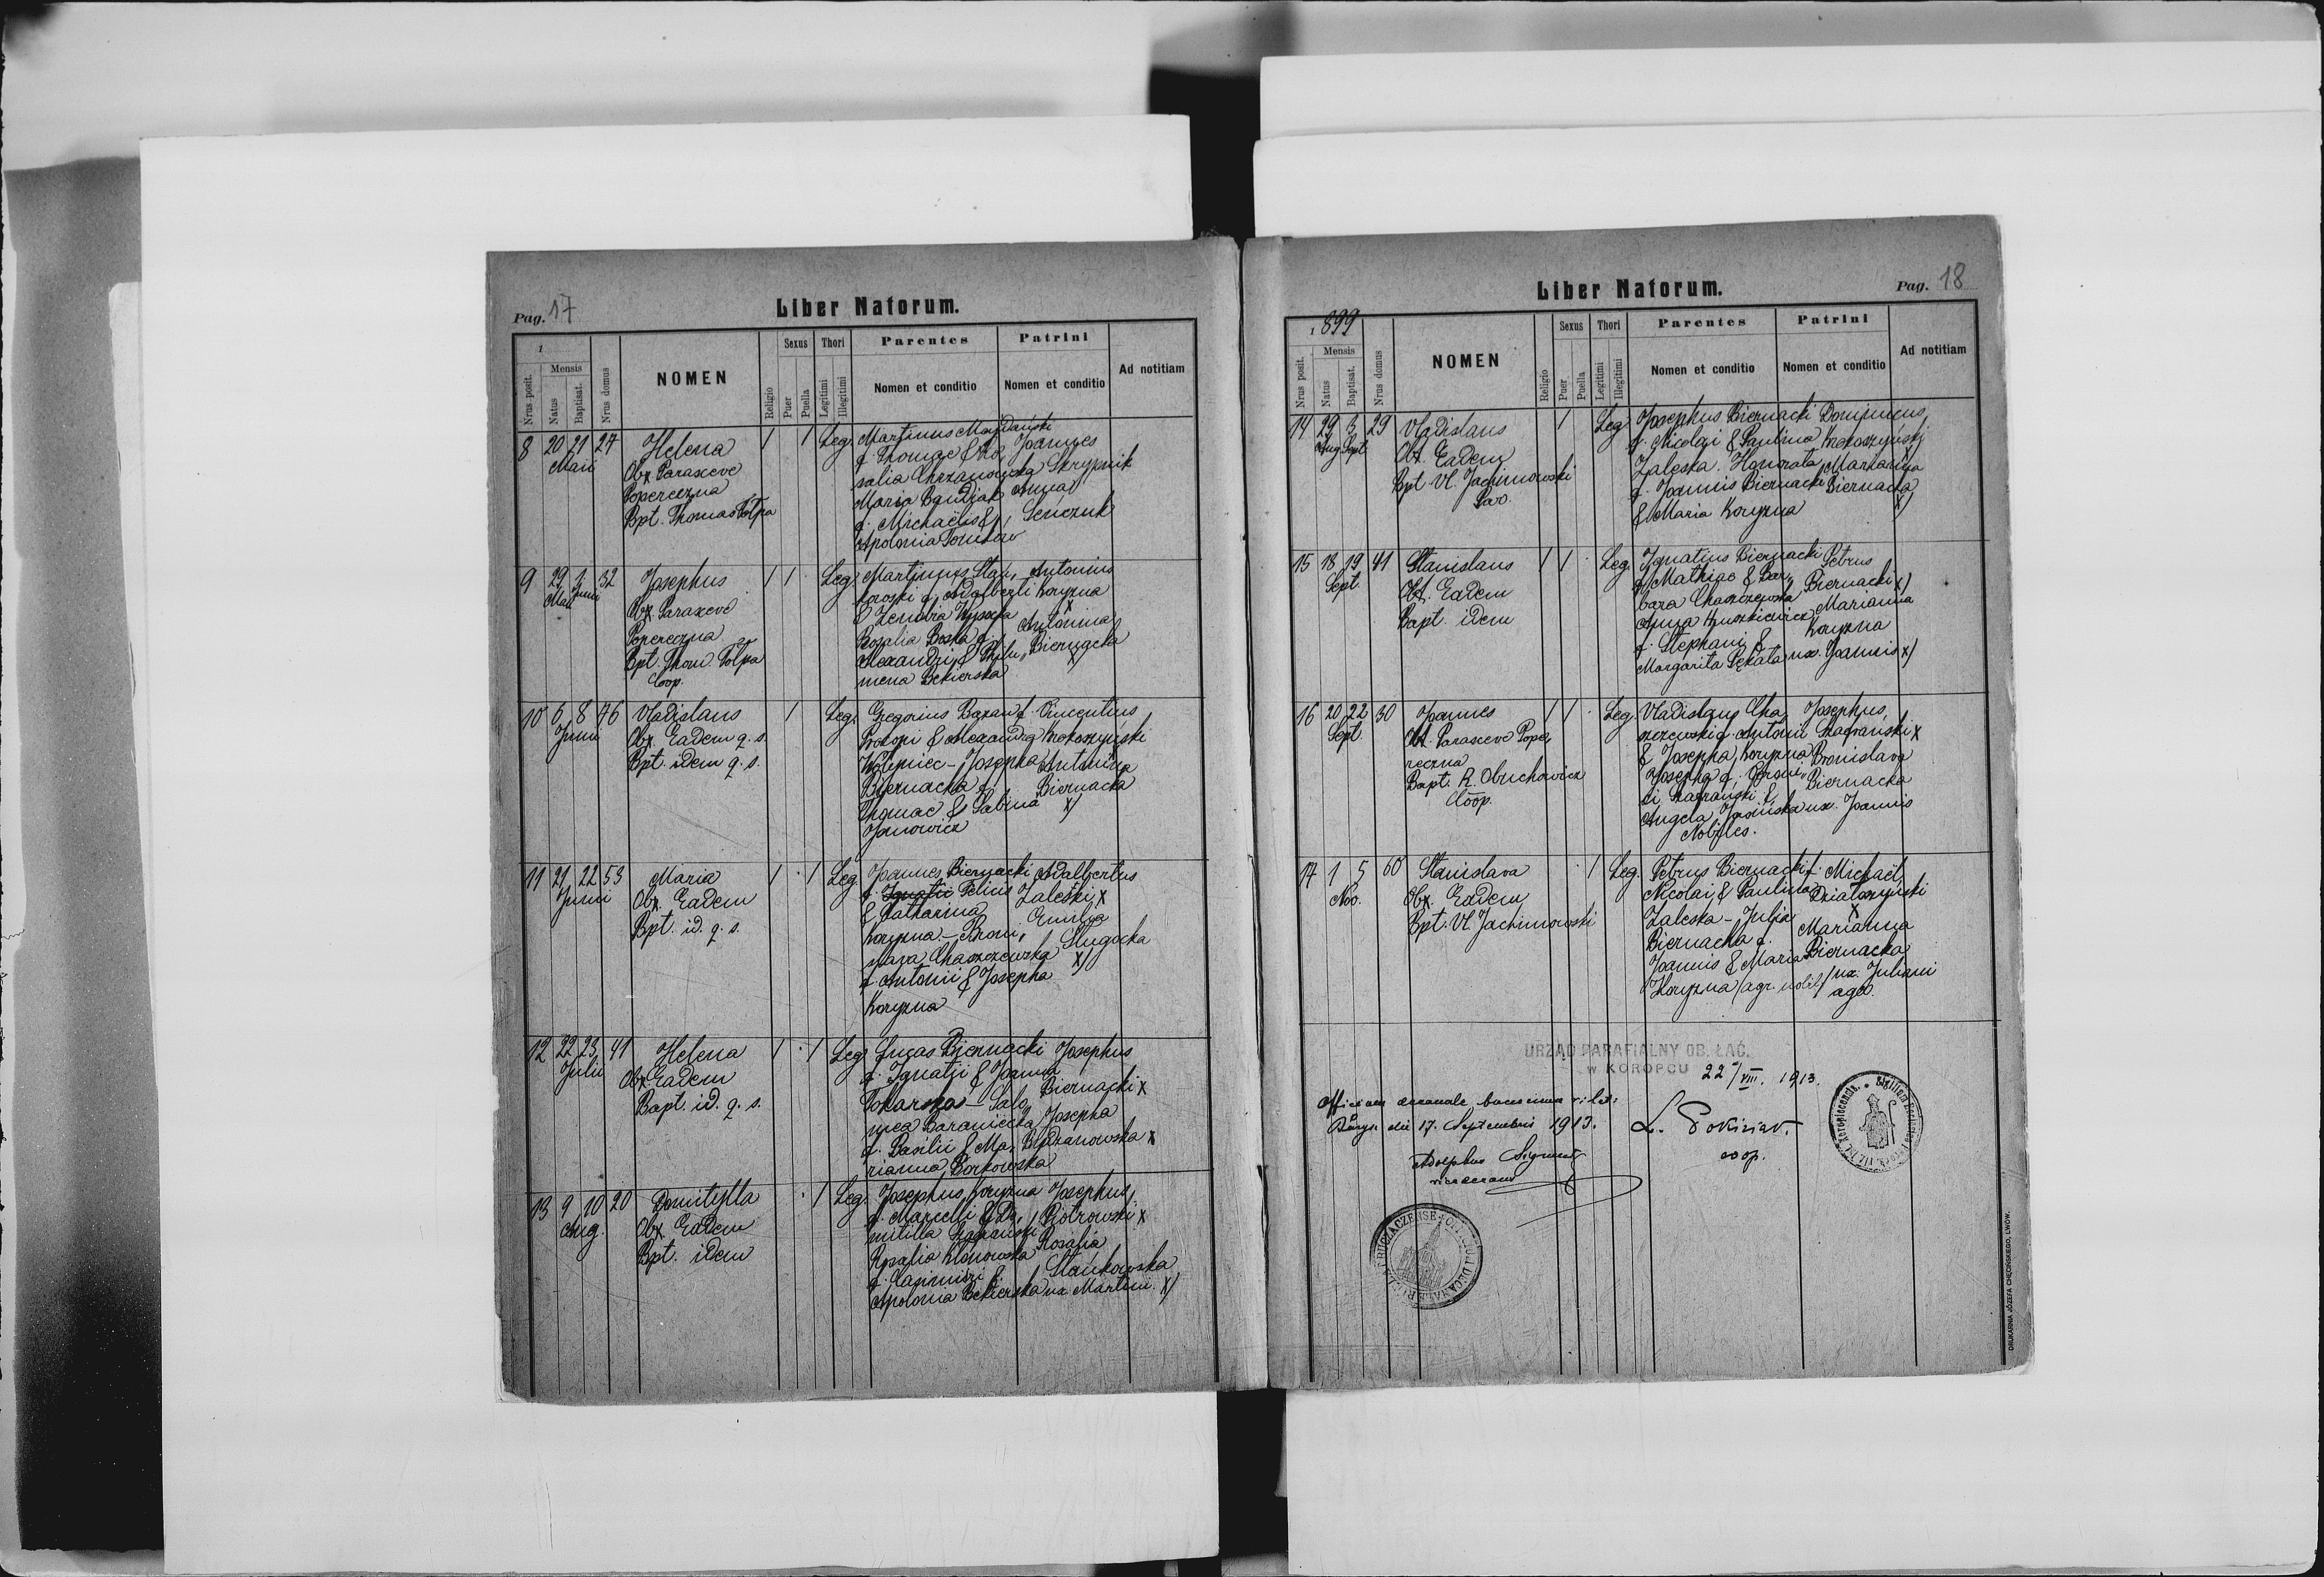 Pag. 17
Liber Natorum.
1
Nrus posit.
Mensis
Natus
Baptisat.
Nrus domus
NOMEN
Religio
Sexus
Puer
Puella
Thori
Legitimi
Illegitimi
Parentes
Nomen et conditio
Patrini
Nomen et conditio
Ad notitiam
8 20 21 27 Helena 1 1 Leg. Martinus Majdański
Maii Obx Parasceve f. Thomae & Ro, Joannes
Popereczna salia Chrzanowska Skrypnik
Bpt. Thomas Tołpa Maria Bandjak Anna
f. Michaëlis & Senczuk
Apolonia
9 29 1 32 Josephus 1 1 Leg. Martinus Antonius
Maii Junii Obx Parasceve f. Adalberti Koryzna
Popereczna & Zenobia x
Bpt. Thom. Tołpa Rosalia f. Antonina
Coop. Alexandri & Philo, Biernacka
mena Bekierska x)
10 6 8 76 Vladislaus 1 Leg. Gregorius Bazan f. Vincentius
Junii Obx. Eadem q. s. Procopi & Alexandra Krokoszyński
Bpt. idem q. s. Josepha Antonina
Biernacka f. Biernacka
Thomae & Sabina x)
Janowicz
11 21 22 53 Maria 1 1 Leg. Joannes Biernacki Adalbertus
Junii Obx. Eadem f. Ignatii Felicis Zaleski x
Bpt. id. q. s. & Catharina Emilia
Koryzna - Broni, Długocka
slava Chaszczewska x)
f. Antonii & Josepha
Koryzna
12 22 23 41 Helena 1 1 Leg. Lucas Biernacki Josephus
Julii Obx Eadem f. Ignatii & Joanna Biernacki x
Bapt. id. q. s. Tokarska - Salo, Josepha
mea Baraniecka
f. Basilii & Ma, x
rianna Borkowska
13 9 10 20 Domitylla 1 Leg. Josephus Koryzna Josephus
Aug. Obx. Eadem f. Marcelli & Do, Piotrowski x
Bpt. idem mitilla Szafrański Rosalia
Rosalia Klonowska Stankowska
f. Casimiri &
Apolonia Bekierska ux. Martini x)
Pag. 18
Liber Natorum.
1899
Nrus posit.
Mensis
Natus
Baptisat.
Nrus domus
NOMEN
Religio
Sexus
Puer
Puella
Thori
Legitimi
Illegitimi
Parentes
Nomen et conditio
Patrini
Nomen et conditio
Ad notitiam
14 29 3 29 Vladislaus 1 Leg. Josephus Biernacki Dominicus
Aug Sept Obt. Eadem f. Nicolai & Paulina Krokoszyński
Bpt Vl. Jachimowski Zaleska. Honorata Marianna
Par. f. Joannis Biernacki Biernacka
& Maria Koryzna x)
15 18 19 41 Stanislaus 1 1 Leg. Ignatius Biernacki Petrus
Sept. Obt. Eadem f. Mathiae & Bar, Biernacki x)
Bapt. idem bara Chaszczewska Marianna
Anna Hruszkiewicz Koryzna
f. Stephani &
Margarita ux. Joannis x)
16 20 22 30 Joannes 1 1 Leg. Vladislaus Cha, Josephus
Sept. Obt. Parasceve Pope, szczewski f. Antoni Szafrański x
reczna & Josepha Koryzna Bronislava
Bapt. R. Obuchowicz Josepha f. Biernacka
Coop. Szafrański &
Angela Jasińska ux. Joannis
Nobiles.
17 1 5 60 Stanislava 1 Leg. Petrus Biernacki f. Michaël
Nov. Obx. Eadem Nicolai & Paulina Działoszyński
Bpt. Vl. Jachimowski Zaleska - Julia x
Biernacka f. Marianna
Joannis & Maria Biernacka
Koryzna /agr. nobil/ ux. Juliani
agr.
URZĄD PARAFIALNY OB. ŁAĆ.
w KOROPCU
22/VIII. 1913.
die 17. Septembris 1913.
Adolphus
coop.
DRUKARNIA JÓZEFA CHĘCIŃSKIEGO, LWÓW.